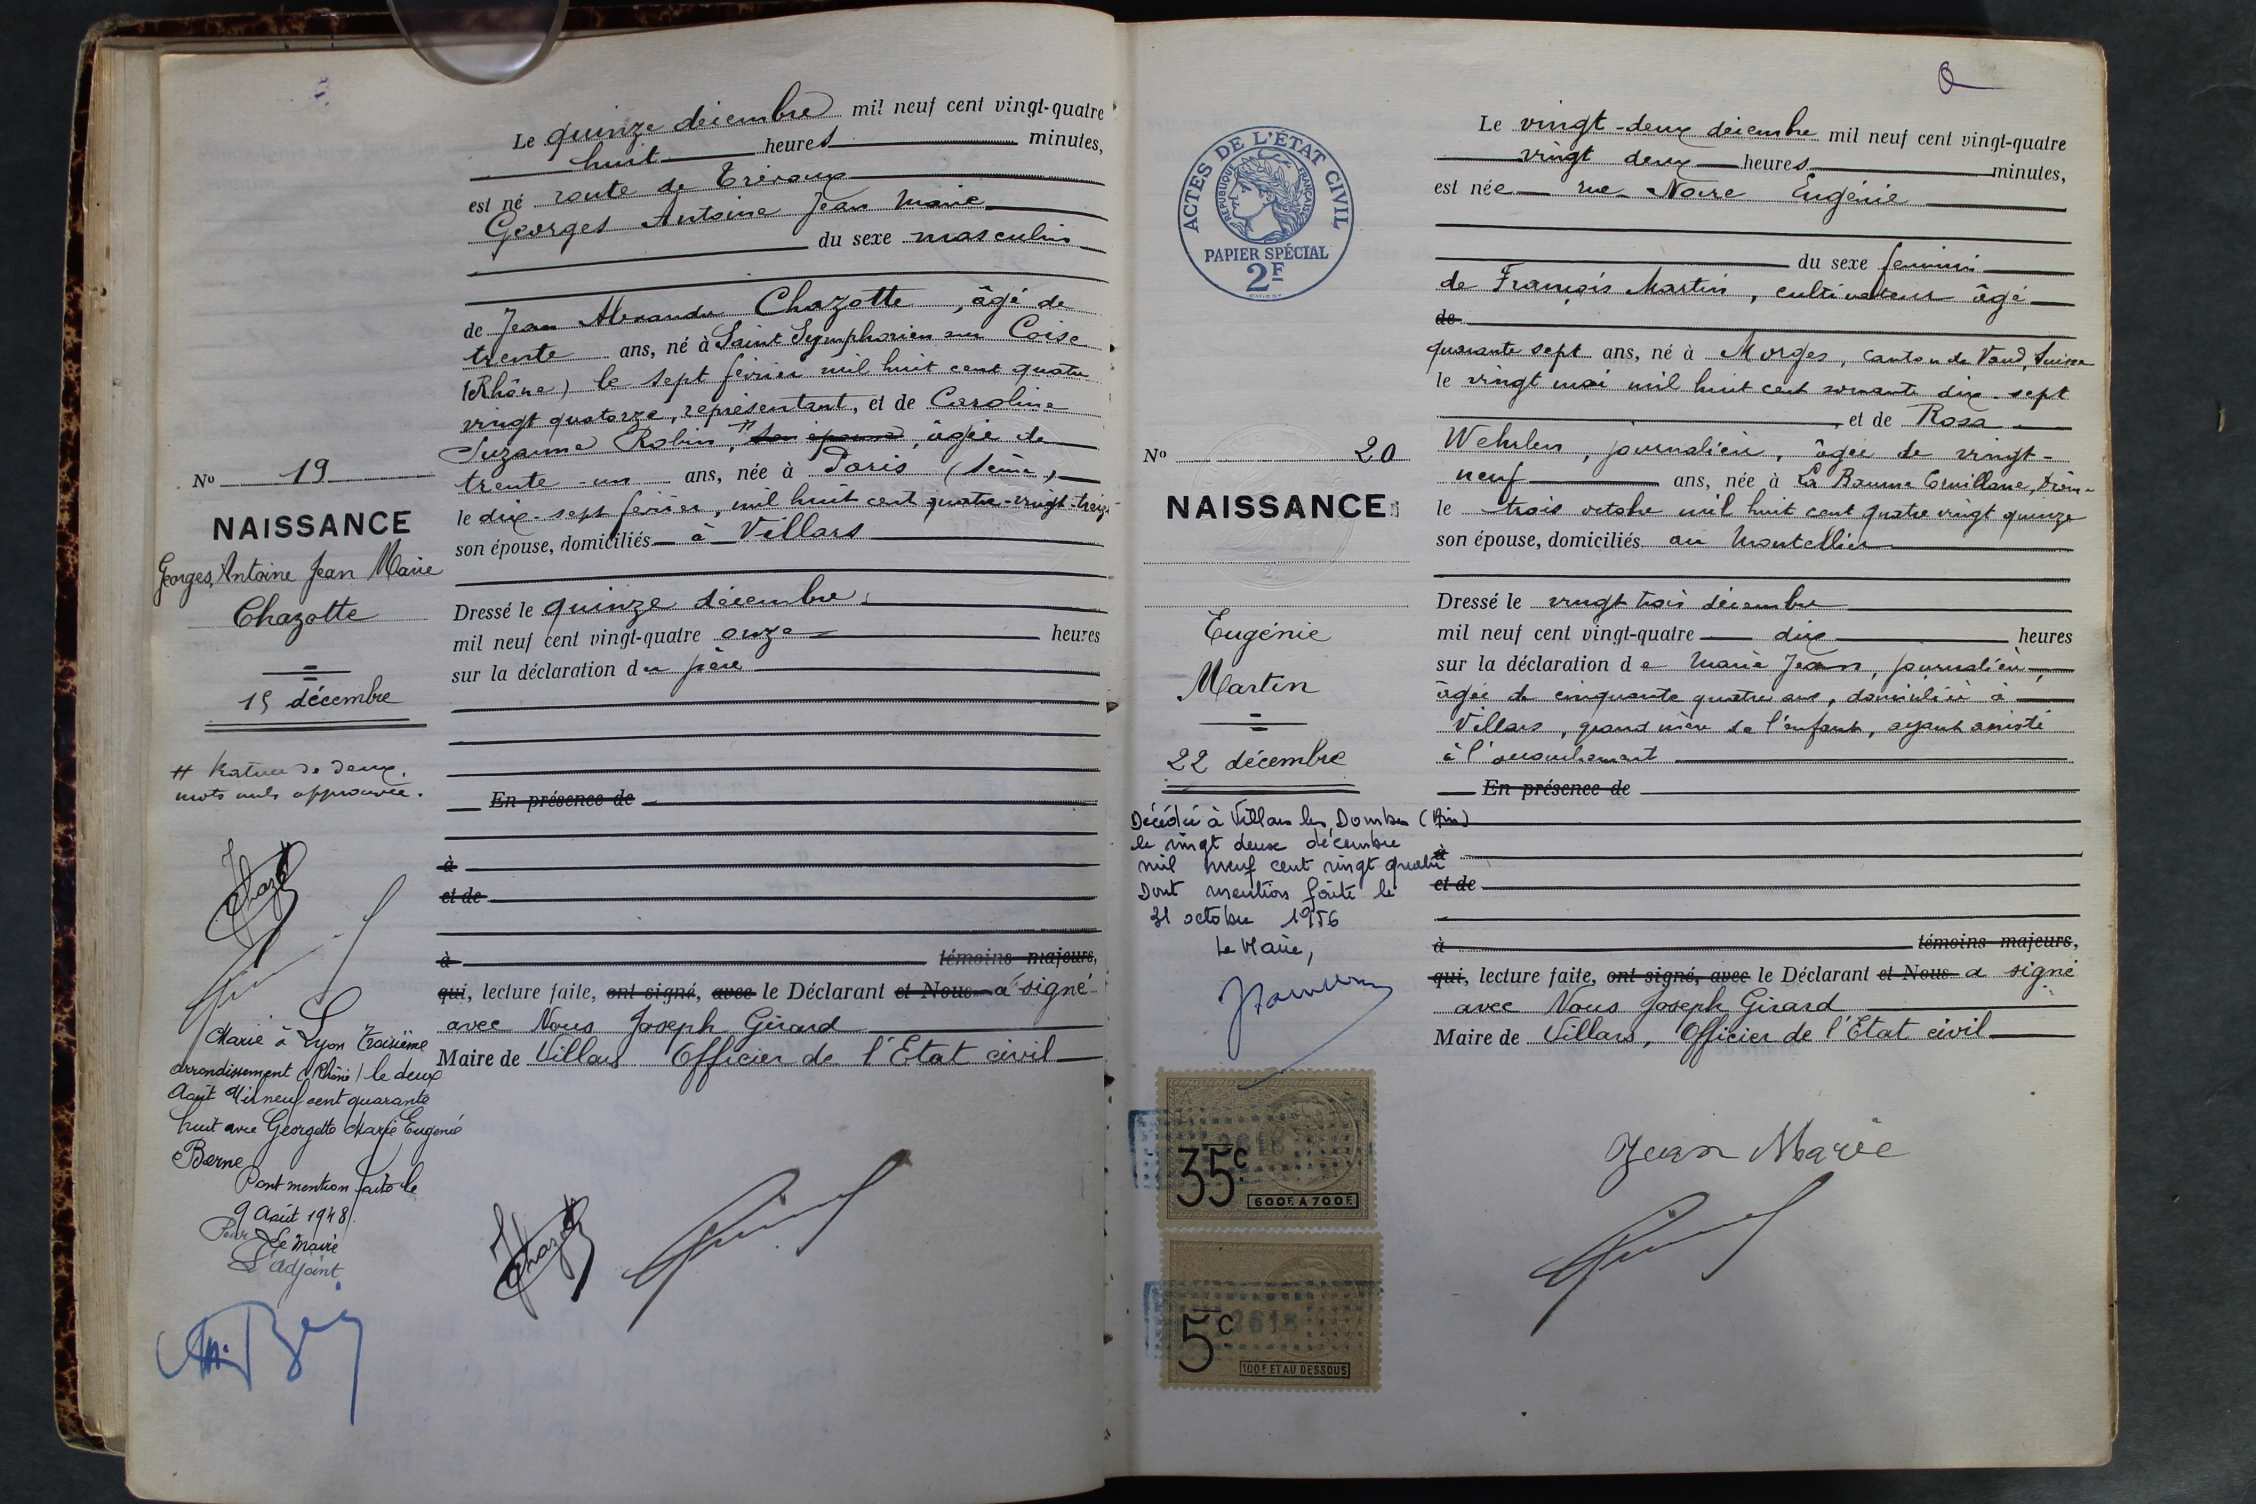 Le quinze décembre mil neuf cent vingt-quatre
huit heures minutes,
est né route de Trévoux
Georges Antoine Jean Marie
du sexe masculin
de Jean Alexandre Chazotte, âgé de
trente ans, né à Saint Symphorien sur Coise
(Rhône) le sept février mil huit cent quatre
vingt quatorze, représentant, et de Caroline
Suzanne Robin, # son épouse, âgée de
trente-un ans, née à Paris (Seine),
le dix-sept février, mil huit cent quatre-vingt-treize
son épouse, domiciliés à Villars
Dressé le quinze décembre
mil neuf cent vingt-quatre onze heures
sur la déclaration du père
En présence de
à
et de
à témoins majeurs,
qui, lecture faite, ont signé, avec le Déclarant et Nous a signé
avec Nous Joseph Girard
Maire de Villars Officier de l'Etat civil
No 19
NAISSANCE
Georges, Antoine Jean Marie
Chazotte
15 décembre
# Rature de deux
mots nuls approuvée.
Marié à Lyon Troisième
arrondissement (Rhône) le deux
Août Mil neuf cent quarante
huit avec Georgette Marie Eugénie
Berne
Dont mention faite le
9 Août 1948.
Pour Le Maire
L'adjoint
ACTES DE L'ÉTAT CIVIL
RÉPUBLIQUE FRANÇAISE
PAPIER SPÉCIAL
2F
No 20
NAISSANCE
Eugénie
Martin
22 décembre
Décédée à Villars les Dombes (Ain)
le vingt deux décembre
mil neuf cent vingt quatre
Dont mention faite le
31 octobre 1956
Le Maire,
2618
35c
600F. A 700F.
2618
5c
100F ET AU DESSOUS
Le vingt-deux décembre mil neuf cent vingt-quatre
vingt deux heures minutes,
est née rue Noire Eugénie
du sexe féminin
de François Martin, cultivateur âgé
de
quarante sept ans, né à Morges, canton de Vaud, Suisse
le vingt mai mil huit cent soixante dix-sept
, et de Rosa
Wehrlen, journalière, âgée de vingt-
neuf ans, née à La Baume Cornillane, Drôme
le trois octobre mil huit cent quatre vingt quinze
son épouse, domiciliés au Montellier
Dressé le vingt trois décembre
mil neuf cent vingt-quatre dix heures
sur la déclaration de Marie Jean, journalière,
âgée de cinquante quatre ans, domiciliée à
Villars, grand mère de l'enfant, ayant assisté
à l'accouchement
En présence de
à
et de
à témoins majeurs,
qui, lecture faite, ont signé, avec le Déclarant et Nous a signé
avec Nous Joseph Girard
Maire de Villars, Officier de l'Etat civil
Jean Marie